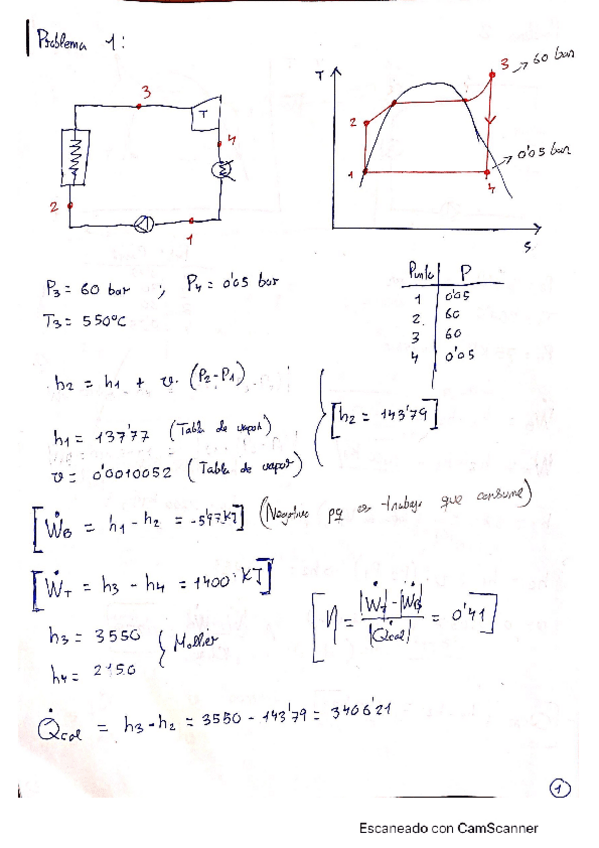 Problema 1:
3
T
4
2
1
T
3 → 60 bar
2
→ 0'05 bar
1
4
S
P3 = 60 bar ; P4 = 0'05 bar
T3 = 550ºC
Punto P
1 0'05
2 60
3 60
4 0'05
h2 = h1 + v. (P2-P1)
h1 = 137'77 (Tabla de vapor)
v = 0'0010052 (Tabla de vapor)
[h2 = 143'79]
[ẆB = h1 - h2 = -5'97 KJ] (Negativo pq es trabajo que consume)
[ẆT = h3 - h4 = 1400 KJ]
h3 = 3550
h4 = 2150
} Mollier
[η = |ẆT| - |ẆB| / |Q̇cal| = 0'41]
Q̇cal = h3 - h2 = 3550 - 143'79 = 3406'21
1
Escaneado con CamScanner